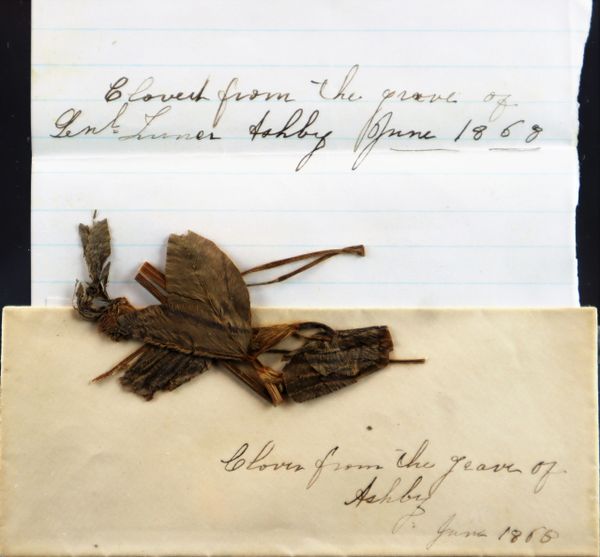 Clover from the grave of
Genl. Turner Ashby June 1868
Clover from the grave of
Ashby
June 1868